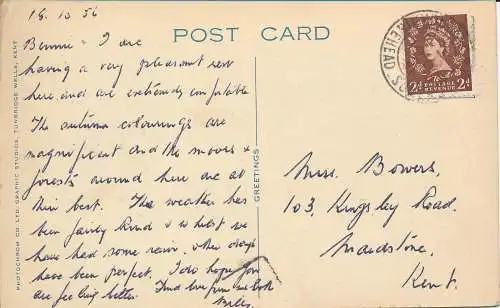 18.10.56
POST CARD
Bonnie & I are
having a very pleasant rest
here and are extremely comfortable
The autumn colourings are
magnificent and the moors &
forests around here are at
their best. The weather has
been fairly kind & whilst we
have had some rain, other days
have been perfect. I do hope you
are feeling better. Fond love from us both
PHOTOCHROM CO. LTD. GRAPHIC STUDIOS, TUNBRIDGE WELLS, KENT
GREETINGS
POSTAGE
REVENUE
2d 2d
Miss. Bowers,
103, Kingsley Road.
Maidstone,
Kent.